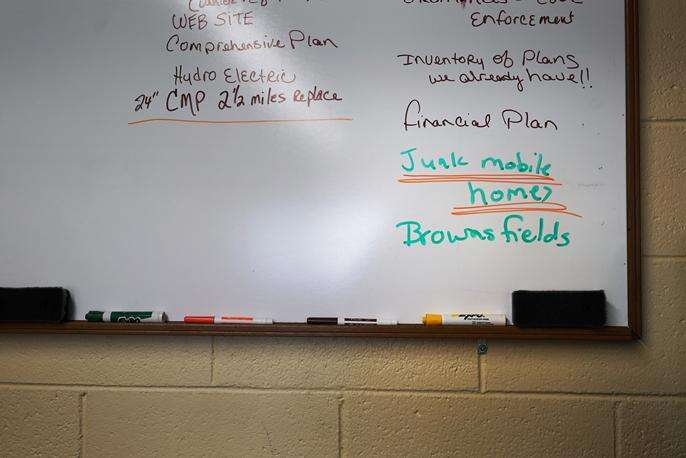 WEB SITE
Comprehensive Plan
Hydro Electric
24" CMP 2 1/2 miles Replace
Enforcement
Inventory of Plans
we already have!!
Financial Plan
Junk mobile
homes
Browns fields